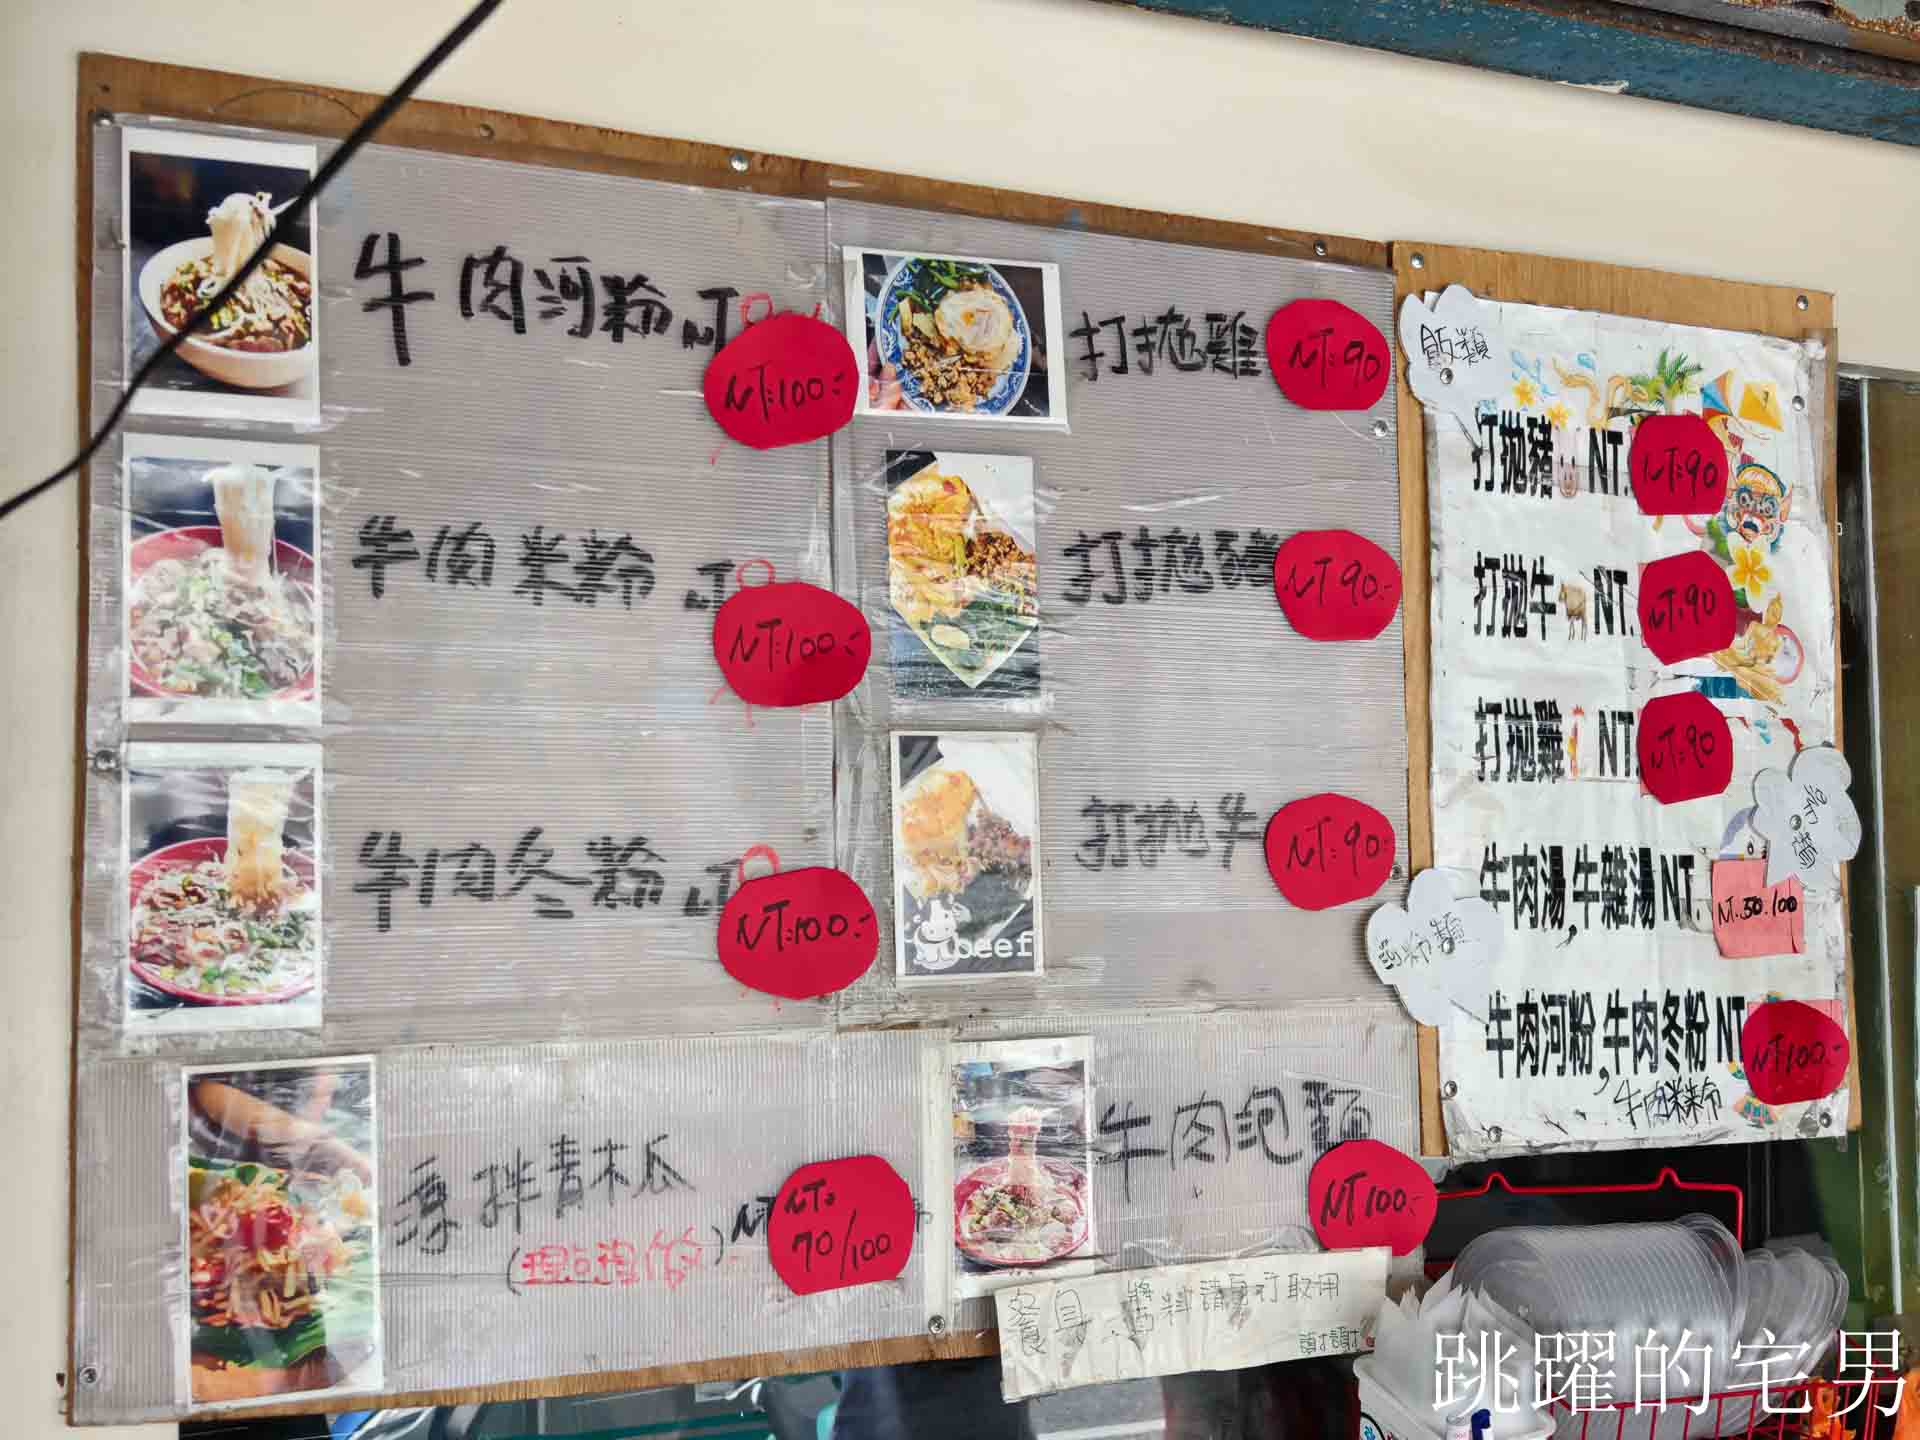 牛肉河粉 NT
NT:100.-
牛肉米粉
NT:100.-
牛肉冬粉
NT:100.-
涼拌青木瓜
(現点現做)
NT:
70/100
打拋雞
NT:90
打拋豬
NT90.-
打拋牛
NT:90.-
beef
牛肉泡麵
NT100.-
餐具、醬料請自行取用
謝謝
飯類
打拋豬 NT.
NT:90
打拋牛 NT.
NT:90
打拋雞 NT.
NT:90
湯類
牛肉湯,牛雜湯 NT.
NT.50.100
河粉類
牛肉河粉,牛肉冬粉 NT
NT100.-
,牛肉米粉
跳躍的宅男